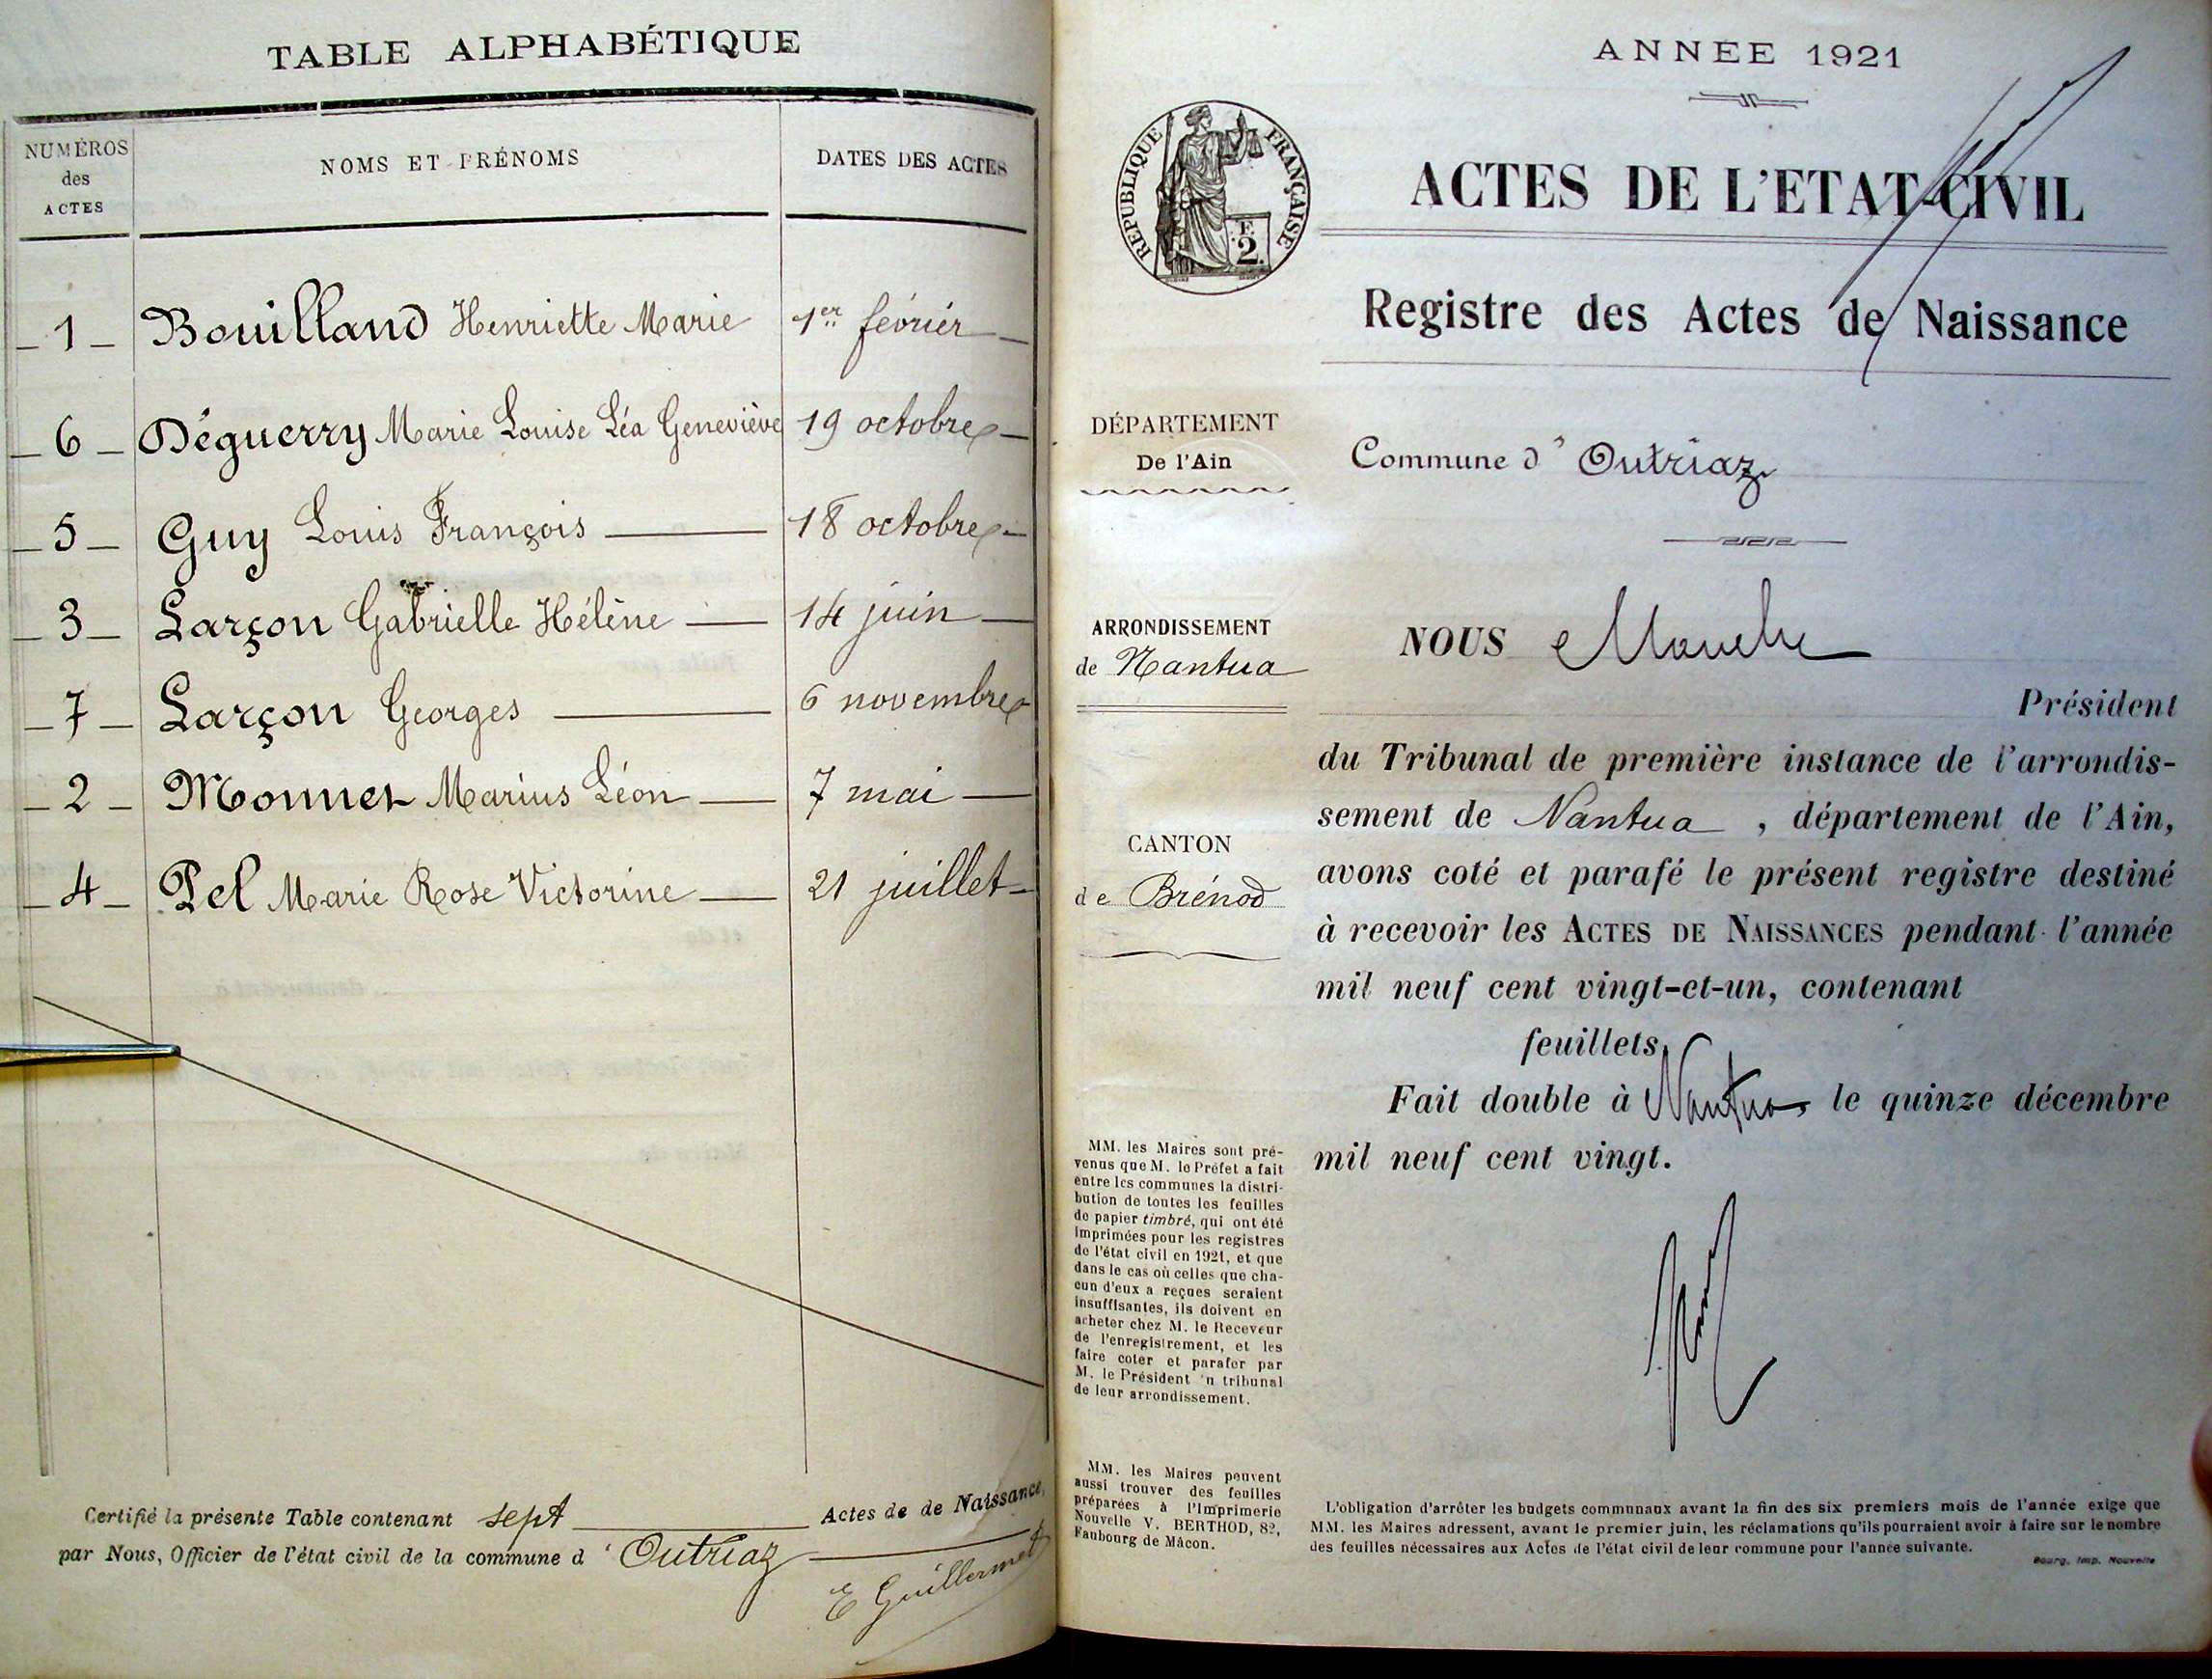 TABLE ALPHABÉTIQUE
NUMÉROS des ACTES
NOMS ET PRÉNOMS
DATES DES ACTES
1 Bouilland Henriette Marie 1er février
6 Déguerry Marie Louise Léa Geneviève 19 octobre
5 Guy Louis François 18 octobre
3 Larçon Gabrielle Hélène 14 juin
7 Larçon Georges 6 novembre
2 Monnet Marius Léon 7 mai
4 Pel Marie Rose Victorine 21 juillet
Certifié la présente Table contenant sept Actes de de Naissance,
par Nous, Officier de l'état civil de la commune d' Outriaz
E Guillermet
ANNEE 1921
RÉPUBLIQUE FRANÇAISE
F.
2.
ACTES DE L'ETAT-CIVIL
Registre des Actes de Naissance
DÉPARTEMENT
De l'Ain
Commune d' Outriaz
ARRONDISSEMENT
de Nantua
CANTON
de Brénod
NOUS
Président
du Tribunal de première instance de l'arrondis-
sement de Nantua, département de l'Ain,
avons coté et parafé le présent registre destiné
à recevoir les ACTES DE NAISSANCES pendant l'année
mil neuf cent vingt-et-un, contenant
feuillets.
Fait double à Nantua, le quinze décembre
mil neuf cent vingt.
MM. les Maires sont pré-
venus que M. le Préfet a fait
entre les communes la distri-
bution de toutes les feuilles
de papier timbré, qui ont été
imprimées pour les registres
de l'état civil en 1921, et que
dans le cas où celles que cha-
cun d'eux a reçues seraient
insuffisantes, ils doivent en
acheter chez M. le Receveur
de l'enregistrement, et les
faire coter et parafer par
M. le Président 'n tribunal
de leur arrondissement.
MM. les Maires peuvent
aussi trouver des feuilles
préparées à l'Imprimerie
Nouvelle V. BERTHOD, 82,
Faubourg de Mâcon.
L'obligation d'arrêter les budgets communaux avant la fin des six premiers mois de l'année exige que
MM. les Maires adressent, avant le premier juin, les réclamations qu'ils pourraient avoir à faire sur le nombre
des feuilles nécessaires aux Actes de l'état civil de leur commune pour l'année suivante.
Bourg, Imp. Nouvelle